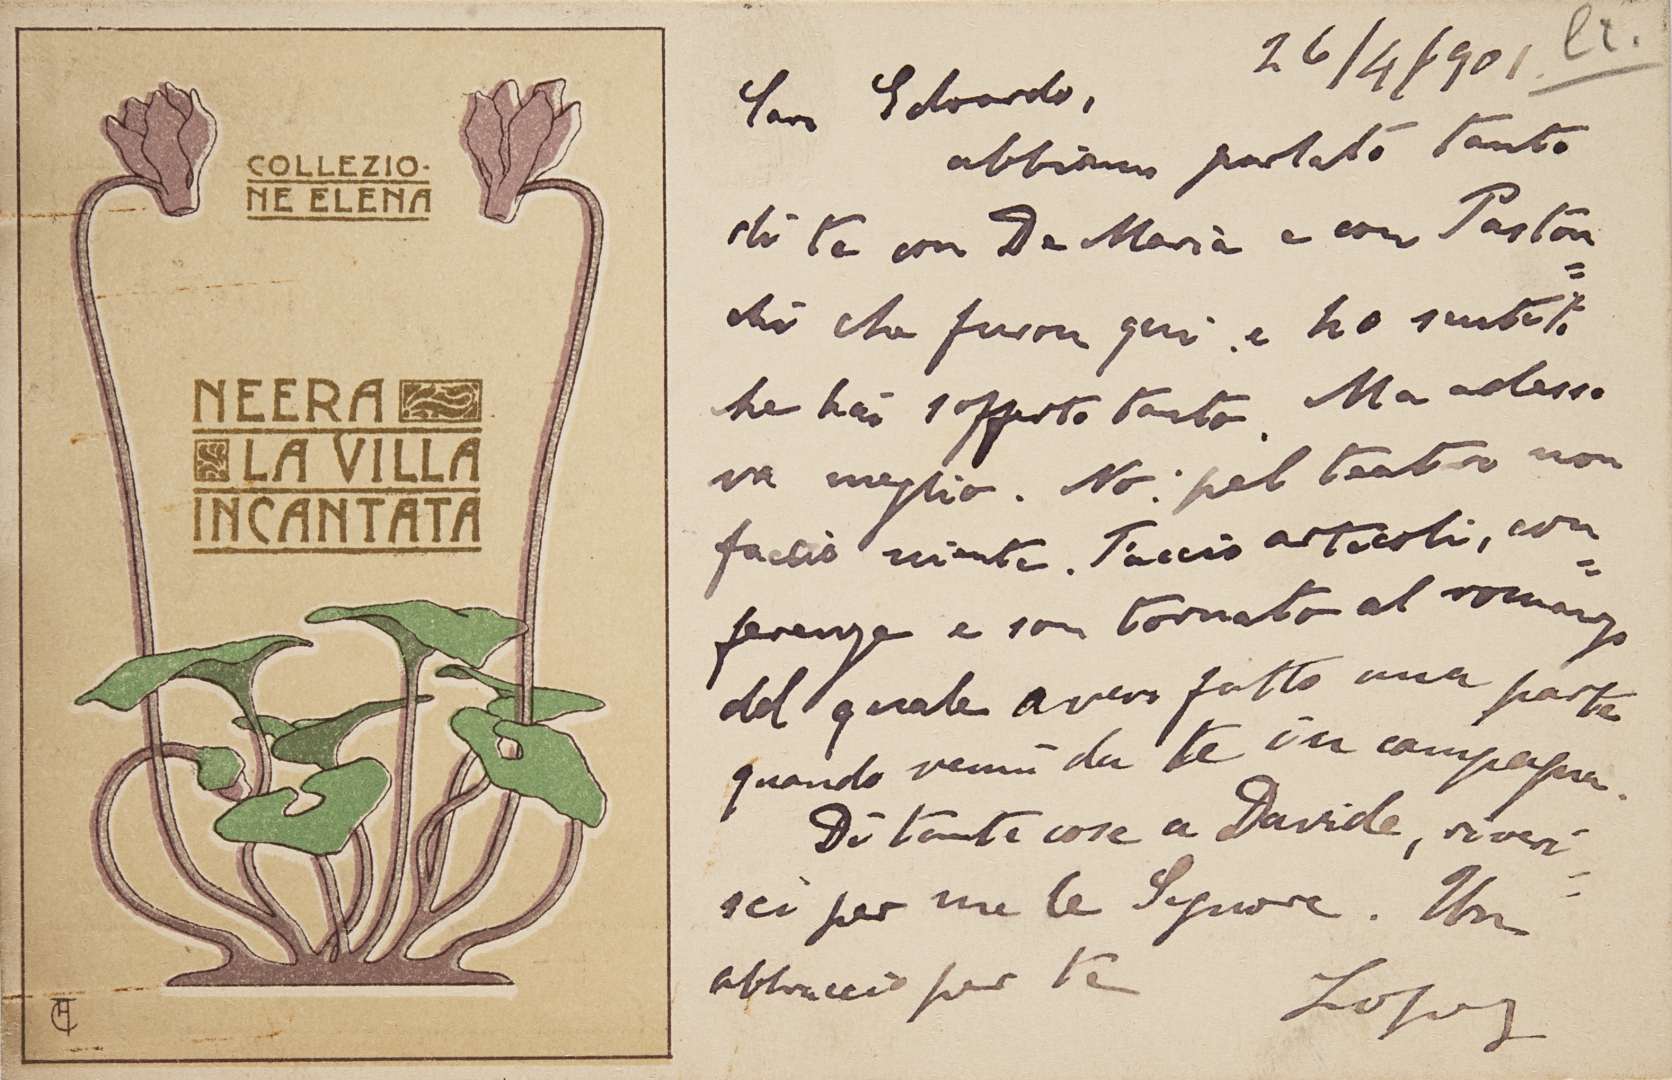 COLLEZIO-
NE ELENA
NEERA
LA VILLA
INCANTATA
26/4/901.
Caro Edoardo,
abbiamo parlato tanto
di te con De Maria e con Paston
=
chi che furon qui e ho sentito
che hai sofferto tanto. Ma adesso
va meglio. No: pel teatro non
faccio niente. Faccio articoli, con
=
ferenze e son tornato al romanzo
del quale avevo fatto una parte
quando venni da te in campagna.
Di tante cose a Davide, riveri
=
sci per me le Signore. Un
abbraccio per te
Lopez